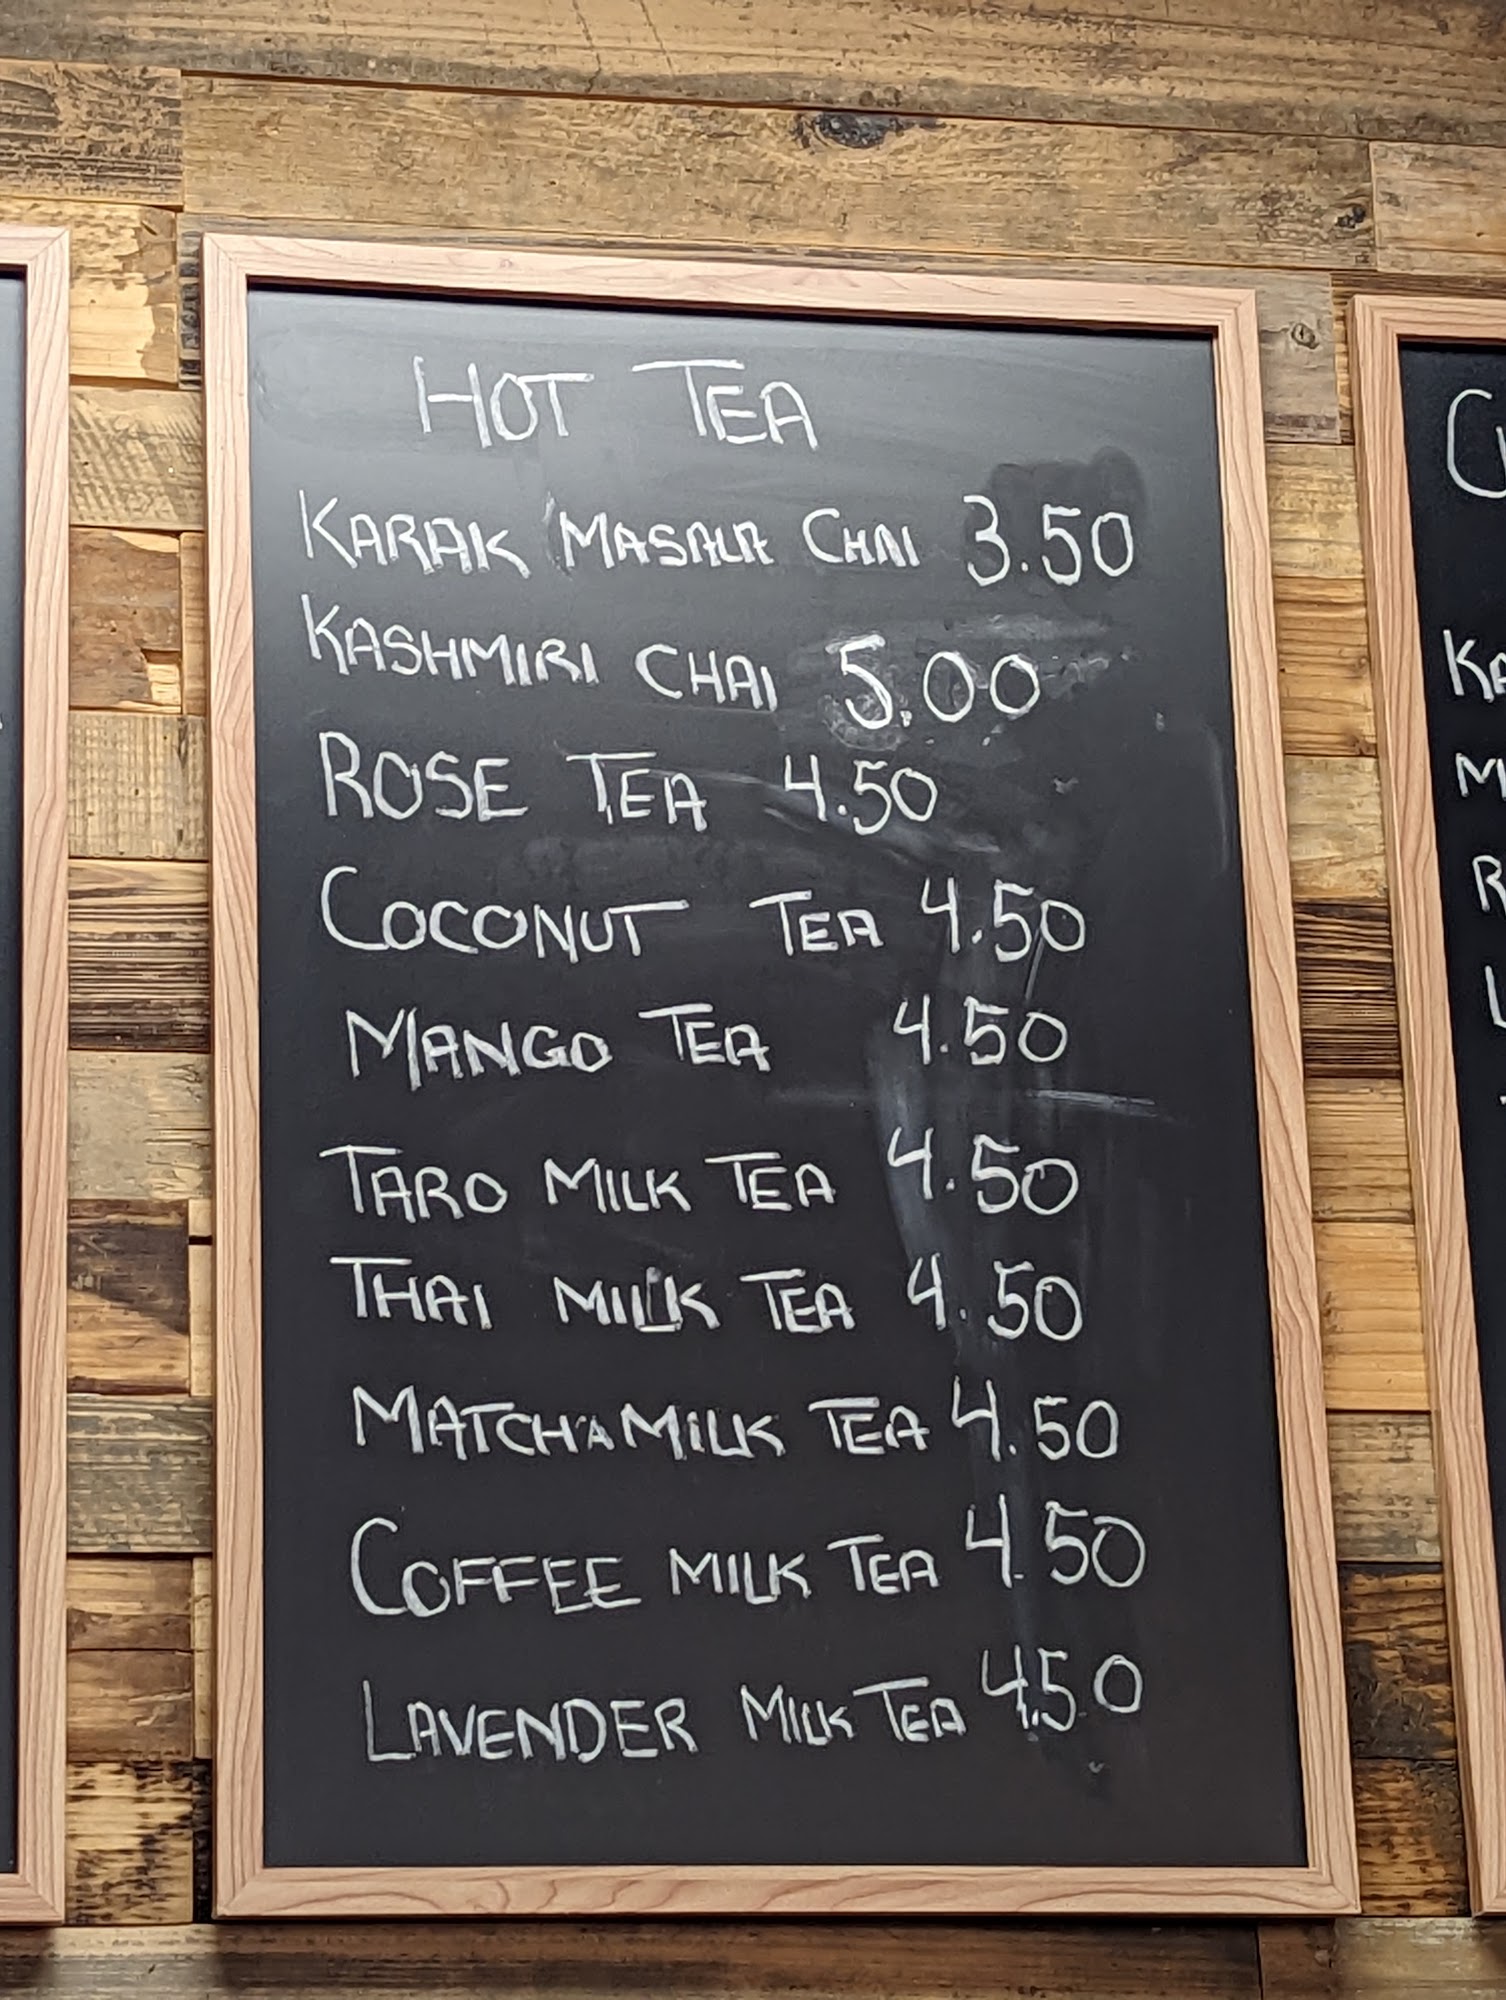 HOT TEA
KARAK MASALA CHAI 3.50
KASHMIRI CHAI 5.00
ROSE TEA 4.50
COCONUT TEA 4.50
MANGO TEA 4.50
TARO MILK TEA 4.50
THAI MILK TEA 4.50
MATCHA MILK TEA 4.50
COFFEE MILK TEA 4.50
LAVENDER MILK TEA 4.50